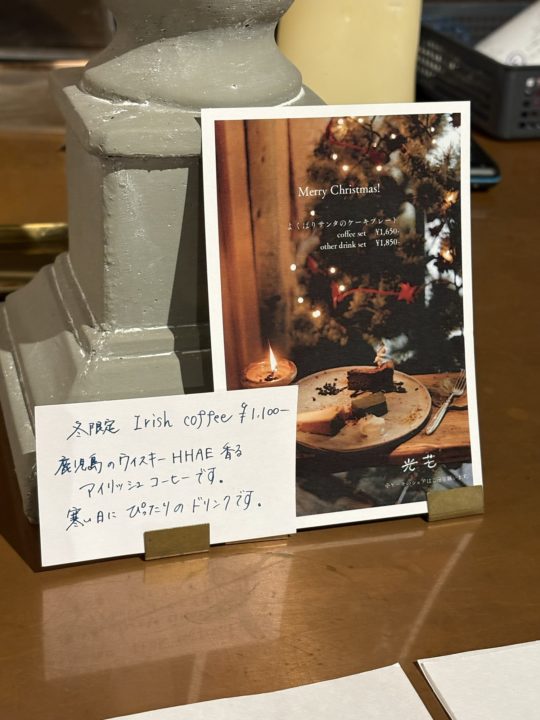 Merry Christmas!
よくばりサンタのケーキプレート
coffee set ¥1,650-
other drink set ¥1,850-
冬限定 Irish coffee ¥1,100-
鹿児島のウィスキー HHAE 香る
アイリッシュコーヒーです。
寒い日に ぴったりの ドリンクです。